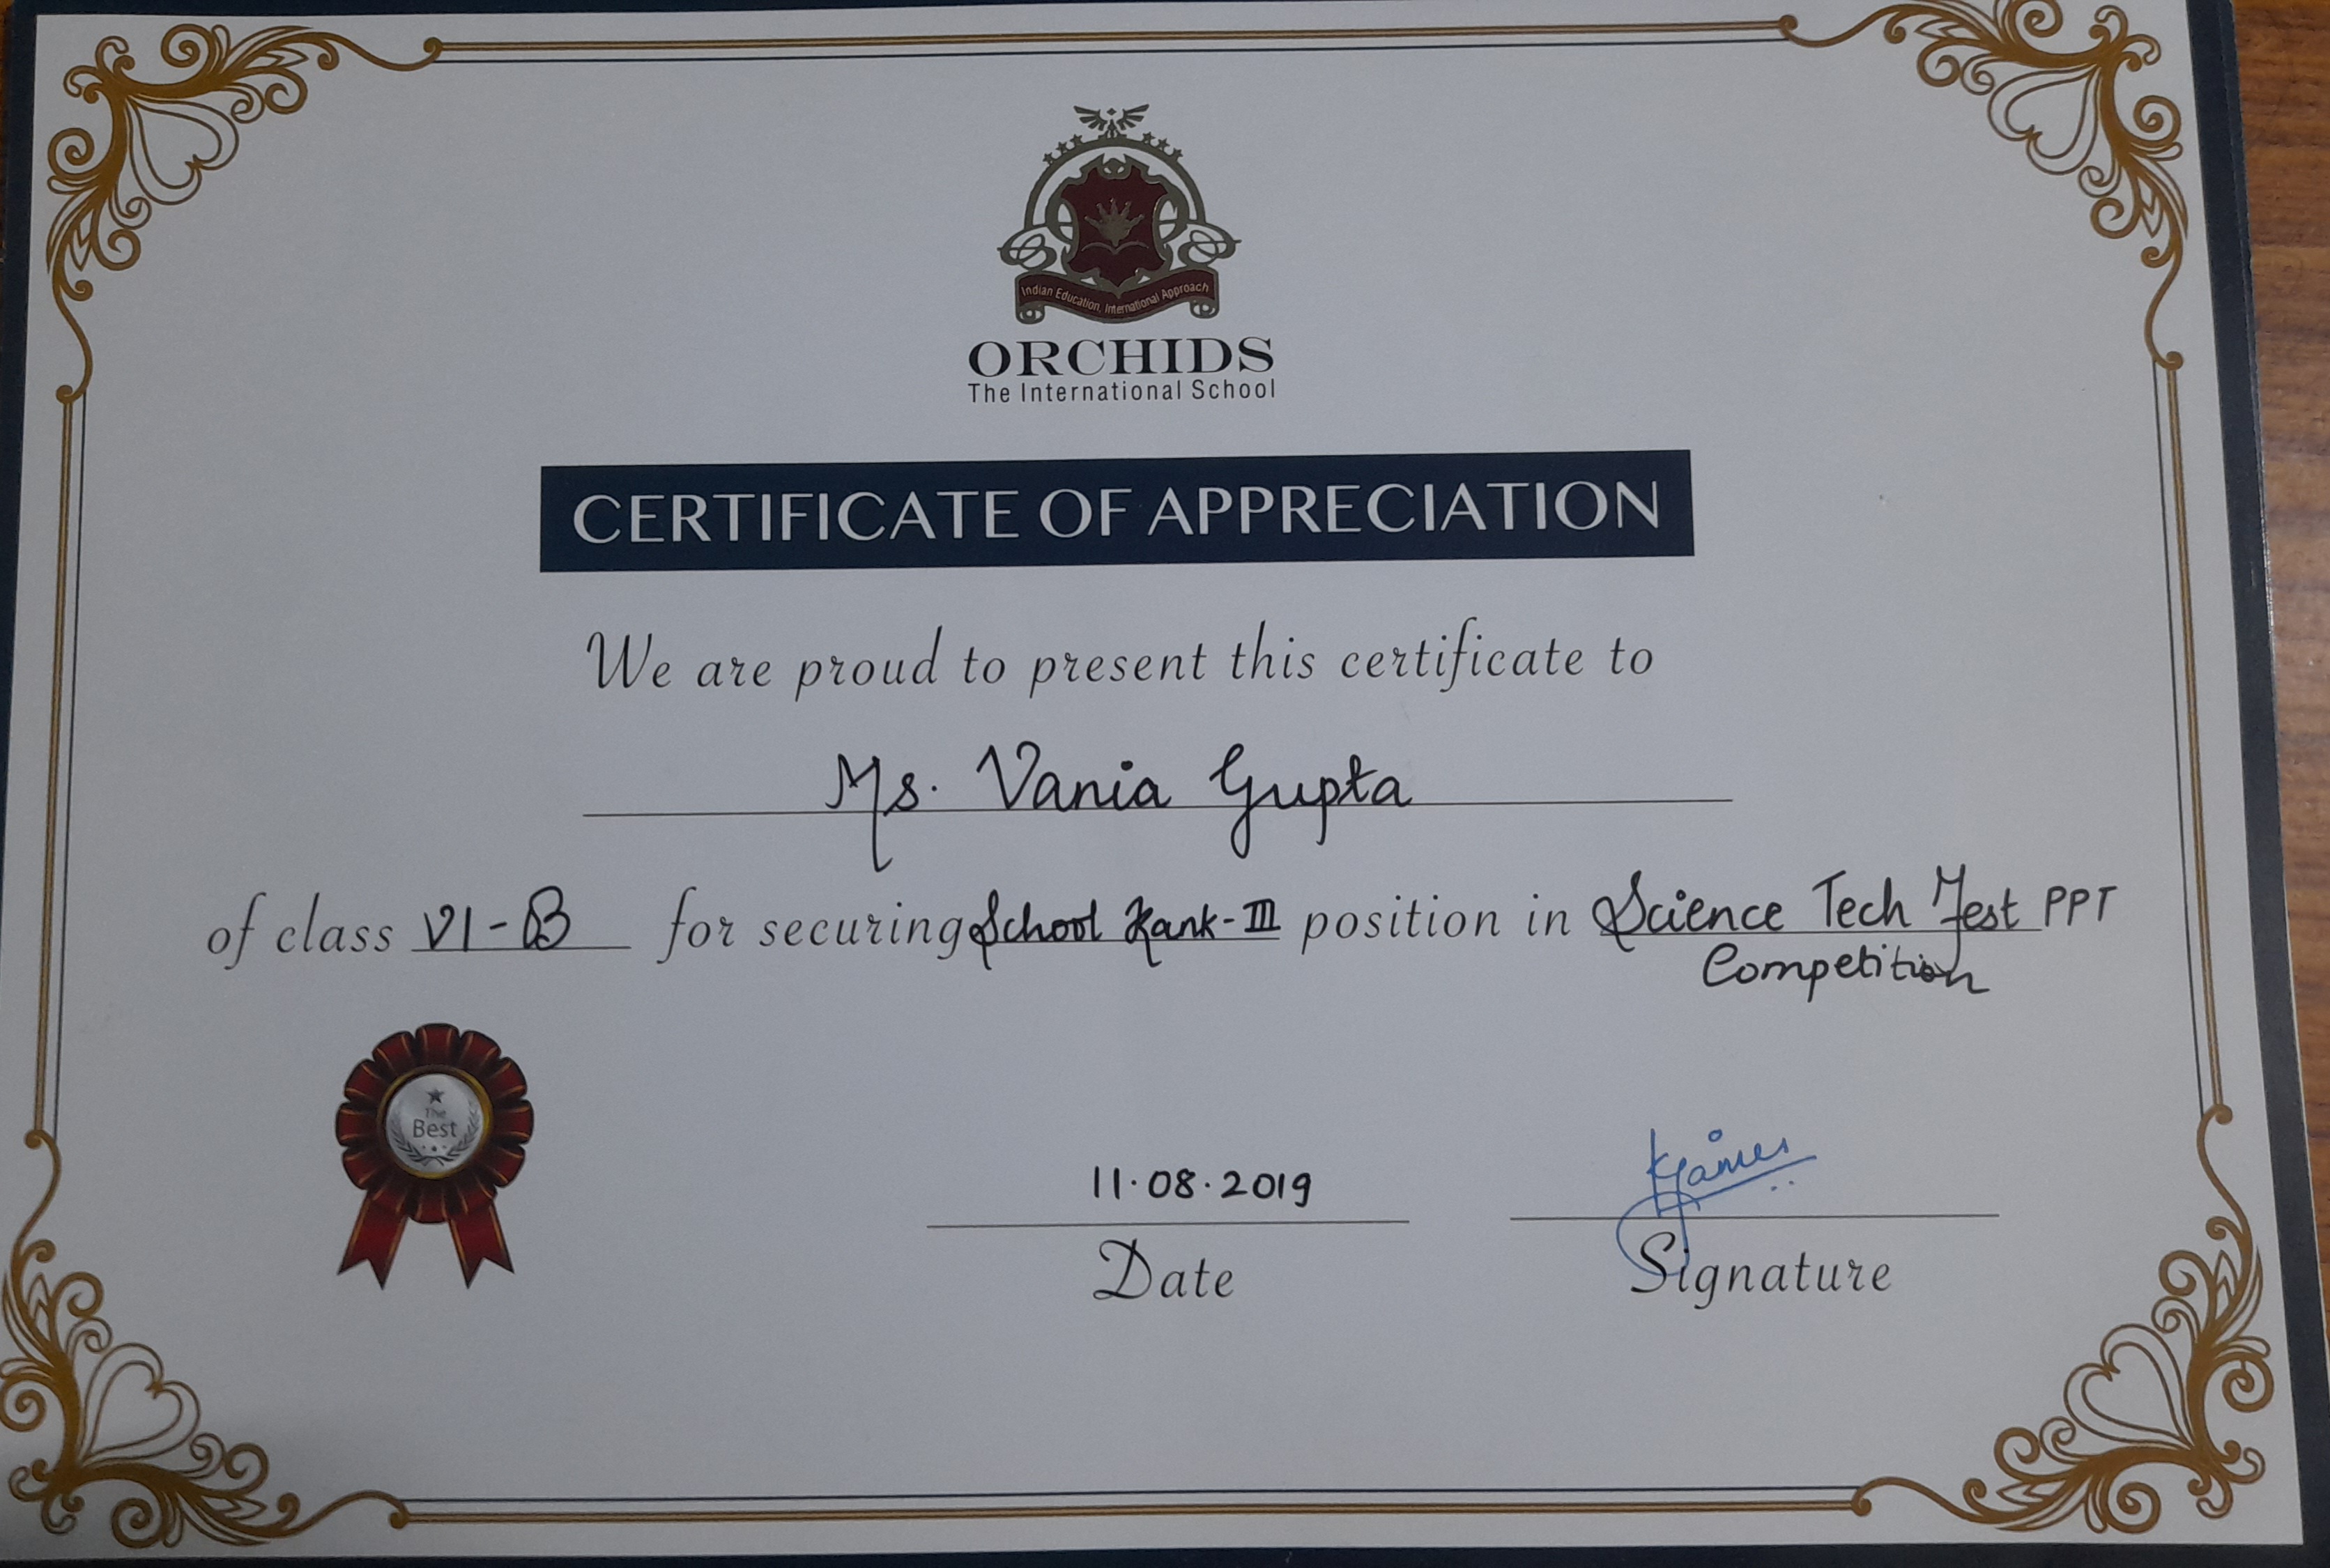 Indian Education, International Approach
ORCHIDS
The International School
CERTIFICATE OF APPRECIATION
We are proud to present this certificate to
Ms. Vania Gupta
of class VI-B for securing School Rank-III position in Science Tech Fest PPT
Competition
The
Best
11.08.2019
Date
Signature